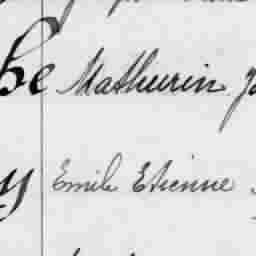 he Mathurin Jo
y Emile Etienne